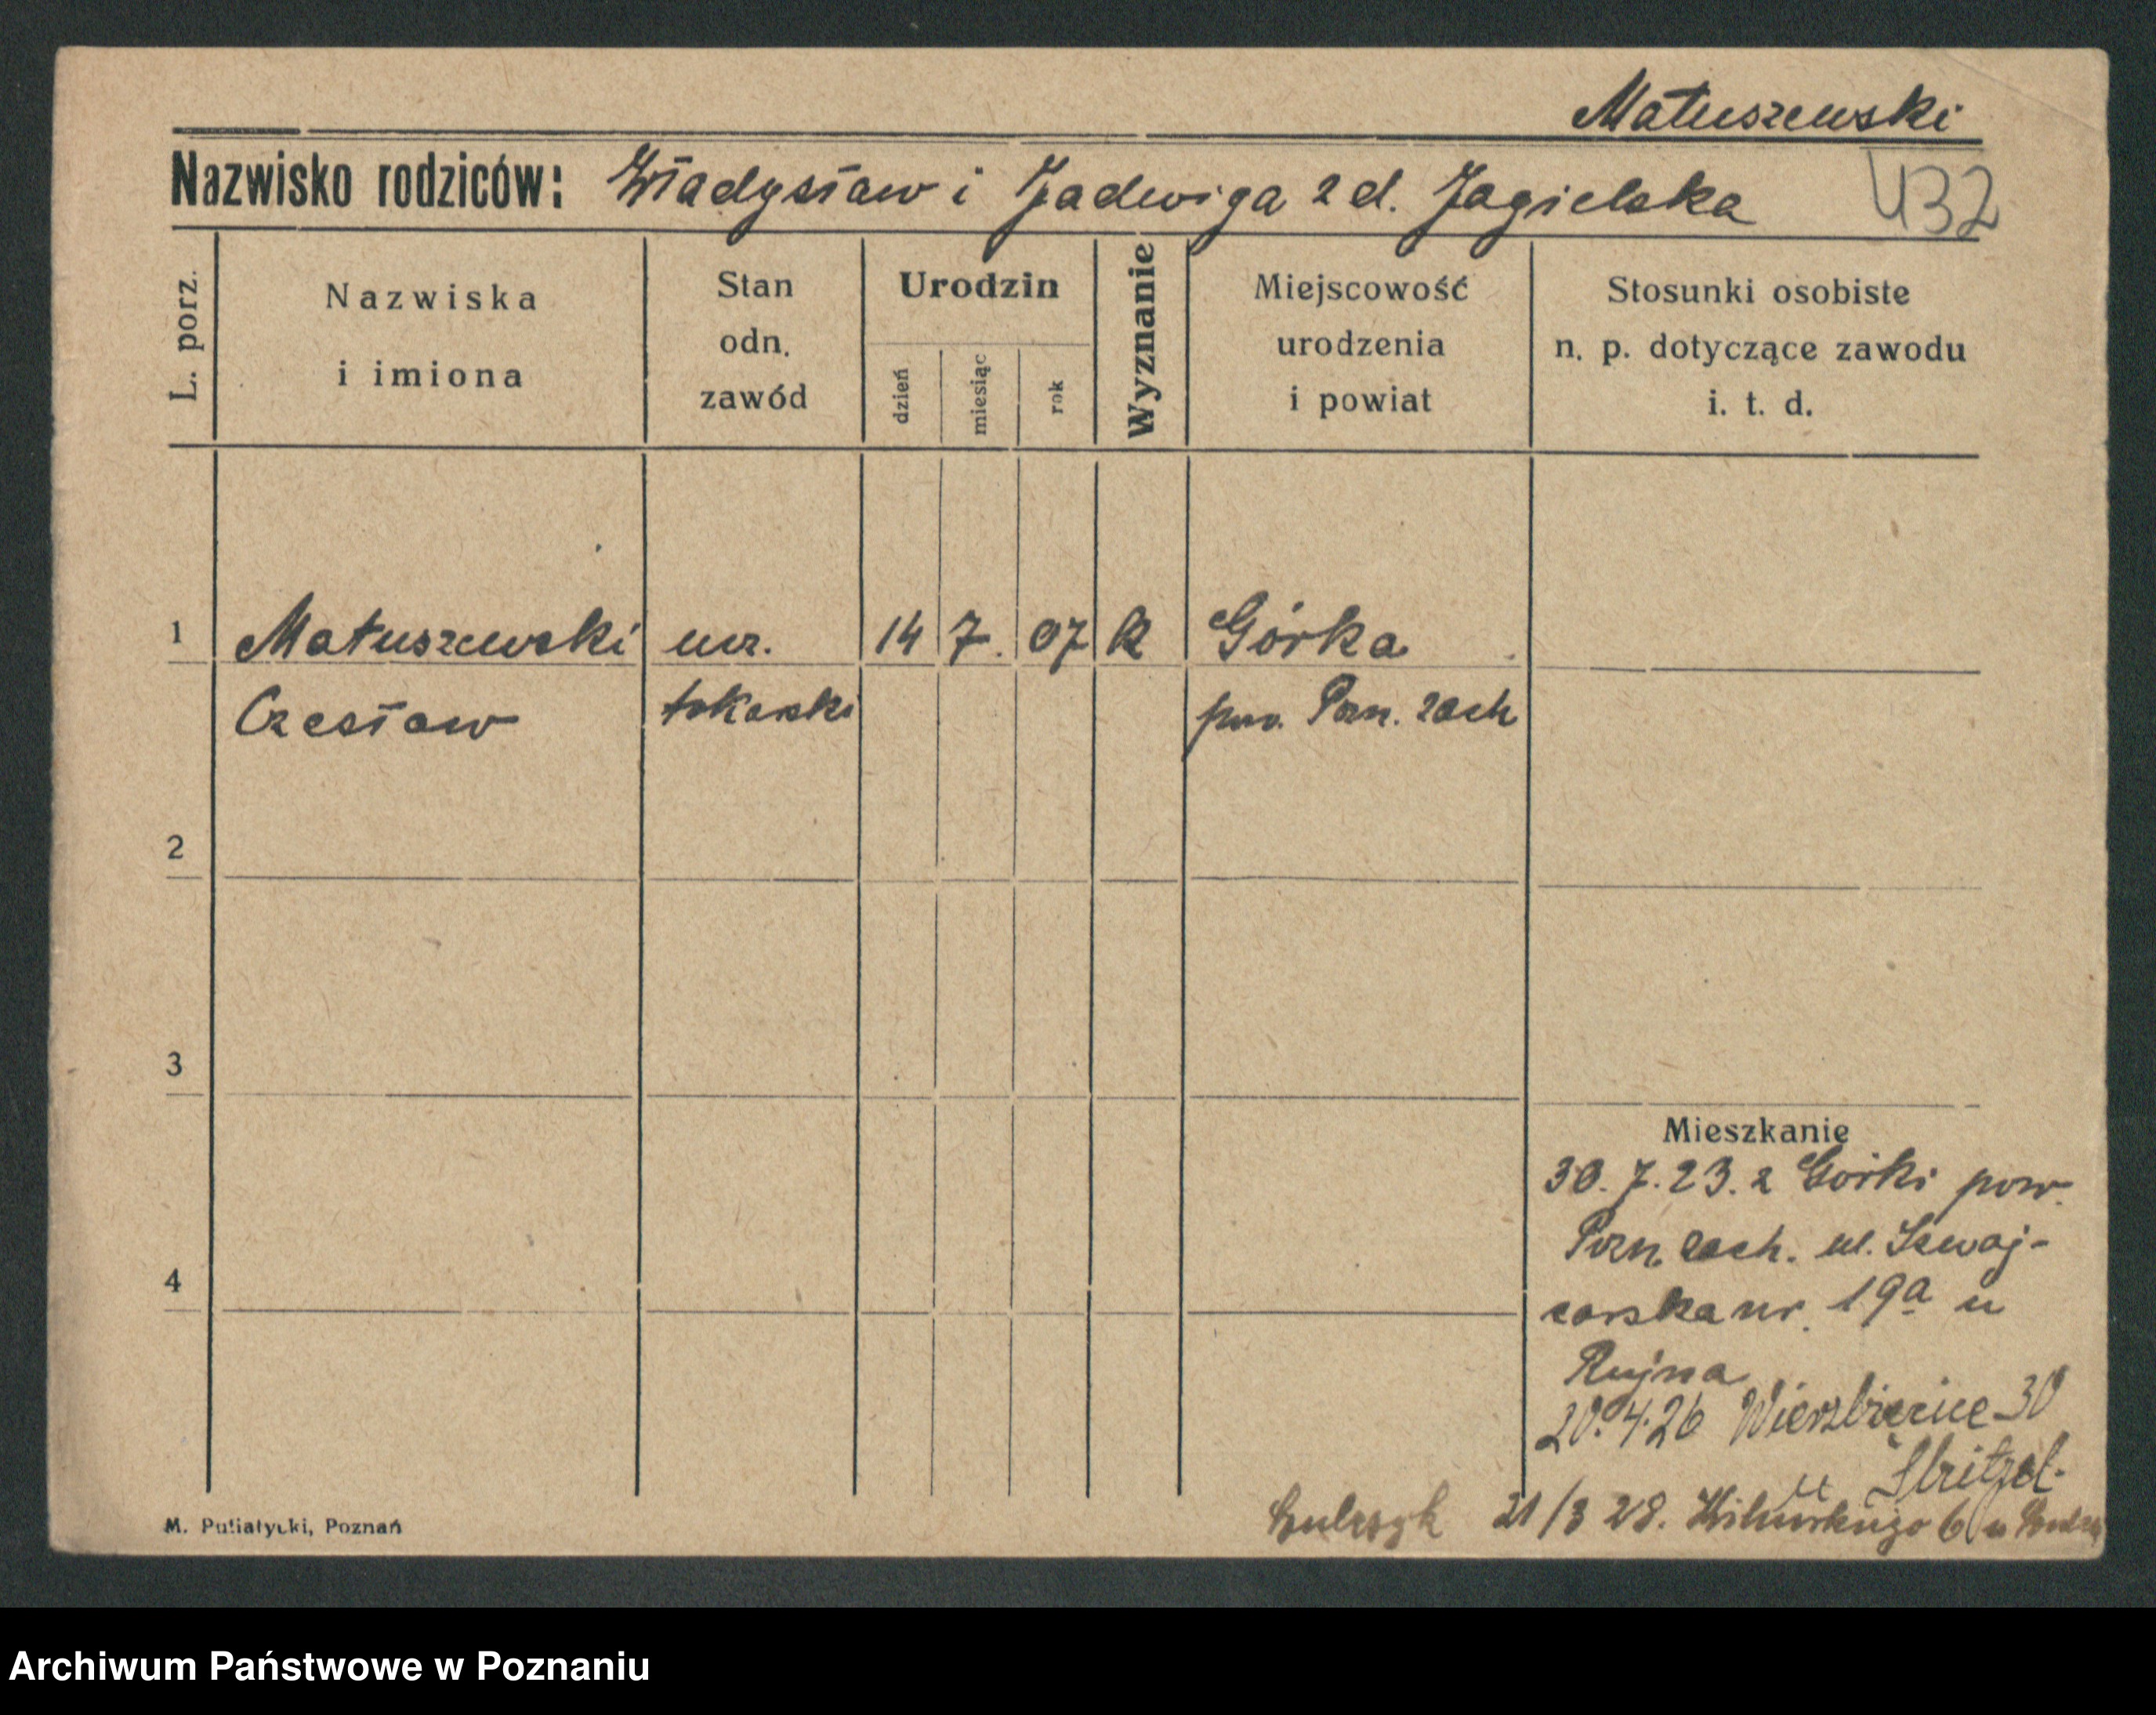 Matuszewski
Nazwisko rodziców: Władysław i Jadwiga z d. Jagielska
432
L. porz.
Nazwiska
i imiona
Stan
odn.
zawód
Urodzin
dzień
miesiąc
rok
Wyznanie
Miejscowość
urodzenia
i powiat
Stosunki osobiste
n. p. dotyczące zawodu
i. t. d.
1 Matuszewski ucz. 14 7. 07 k Górka
Czesław tokarski pow. Pozn. zach
2
3
4
Mieszkanie
30.7.23. z Górki pow.
Pozn. zach. ul. Szwaj-
carska nr. 19a u
Rujna
20.4.26 Wierzbięcice 30
u Stritzel.
21/3 28. 6 u
M. Putiatycki, Poznań
Archiwum Państwowe w Poznaniu